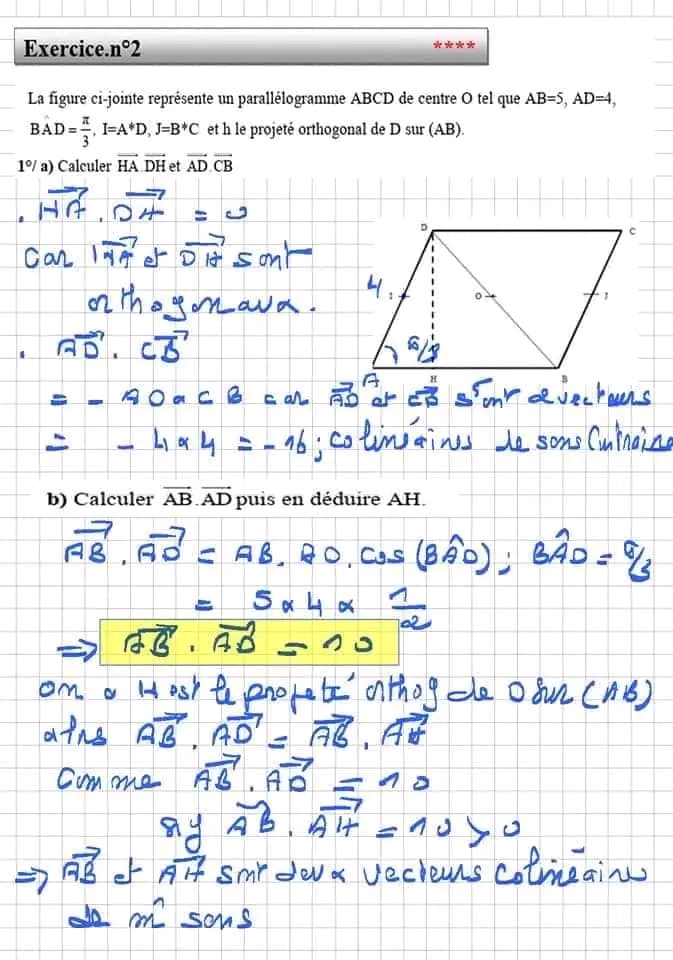 Exercice.n°2 ****
La figure ci-jointe représente un parallélogramme ABCD de centre O tel que AB=5, AD=4,
BÂD = π/3, I=A*D, J=B*C et h le projeté orthogonal de D sur (AB).
1°/ a) Calculer HA.DH et AD.CB
. HA . DH = 0
Car HA et DH sont
orthogonaux.
D C
4 I O J
π/3
A H B
. AD . CB
= - AD x CB car AD et CB sont 2 vecteurs
= - 4 x 4 = -16 ; colinéaires de sens contraire
b) Calculer AB.AD puis en déduire AH.
AB . AD = AB . AD . cos (BÂD) ; BÂD = π/3
= 5 x 4 x 1/2
=> AB . AD = 10
on a H est le projeté orthog de D sur (AB)
alors AB . AD = AB . AH
Comme AB . AD = 10
sig AB . AH = 10 > 0
=> AB et AH sont deux vecteurs colinéaires
de m̂ sens